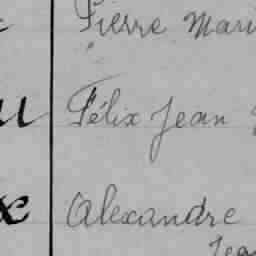 Pierre Mari
Félix Jean
Alexandre
Jea